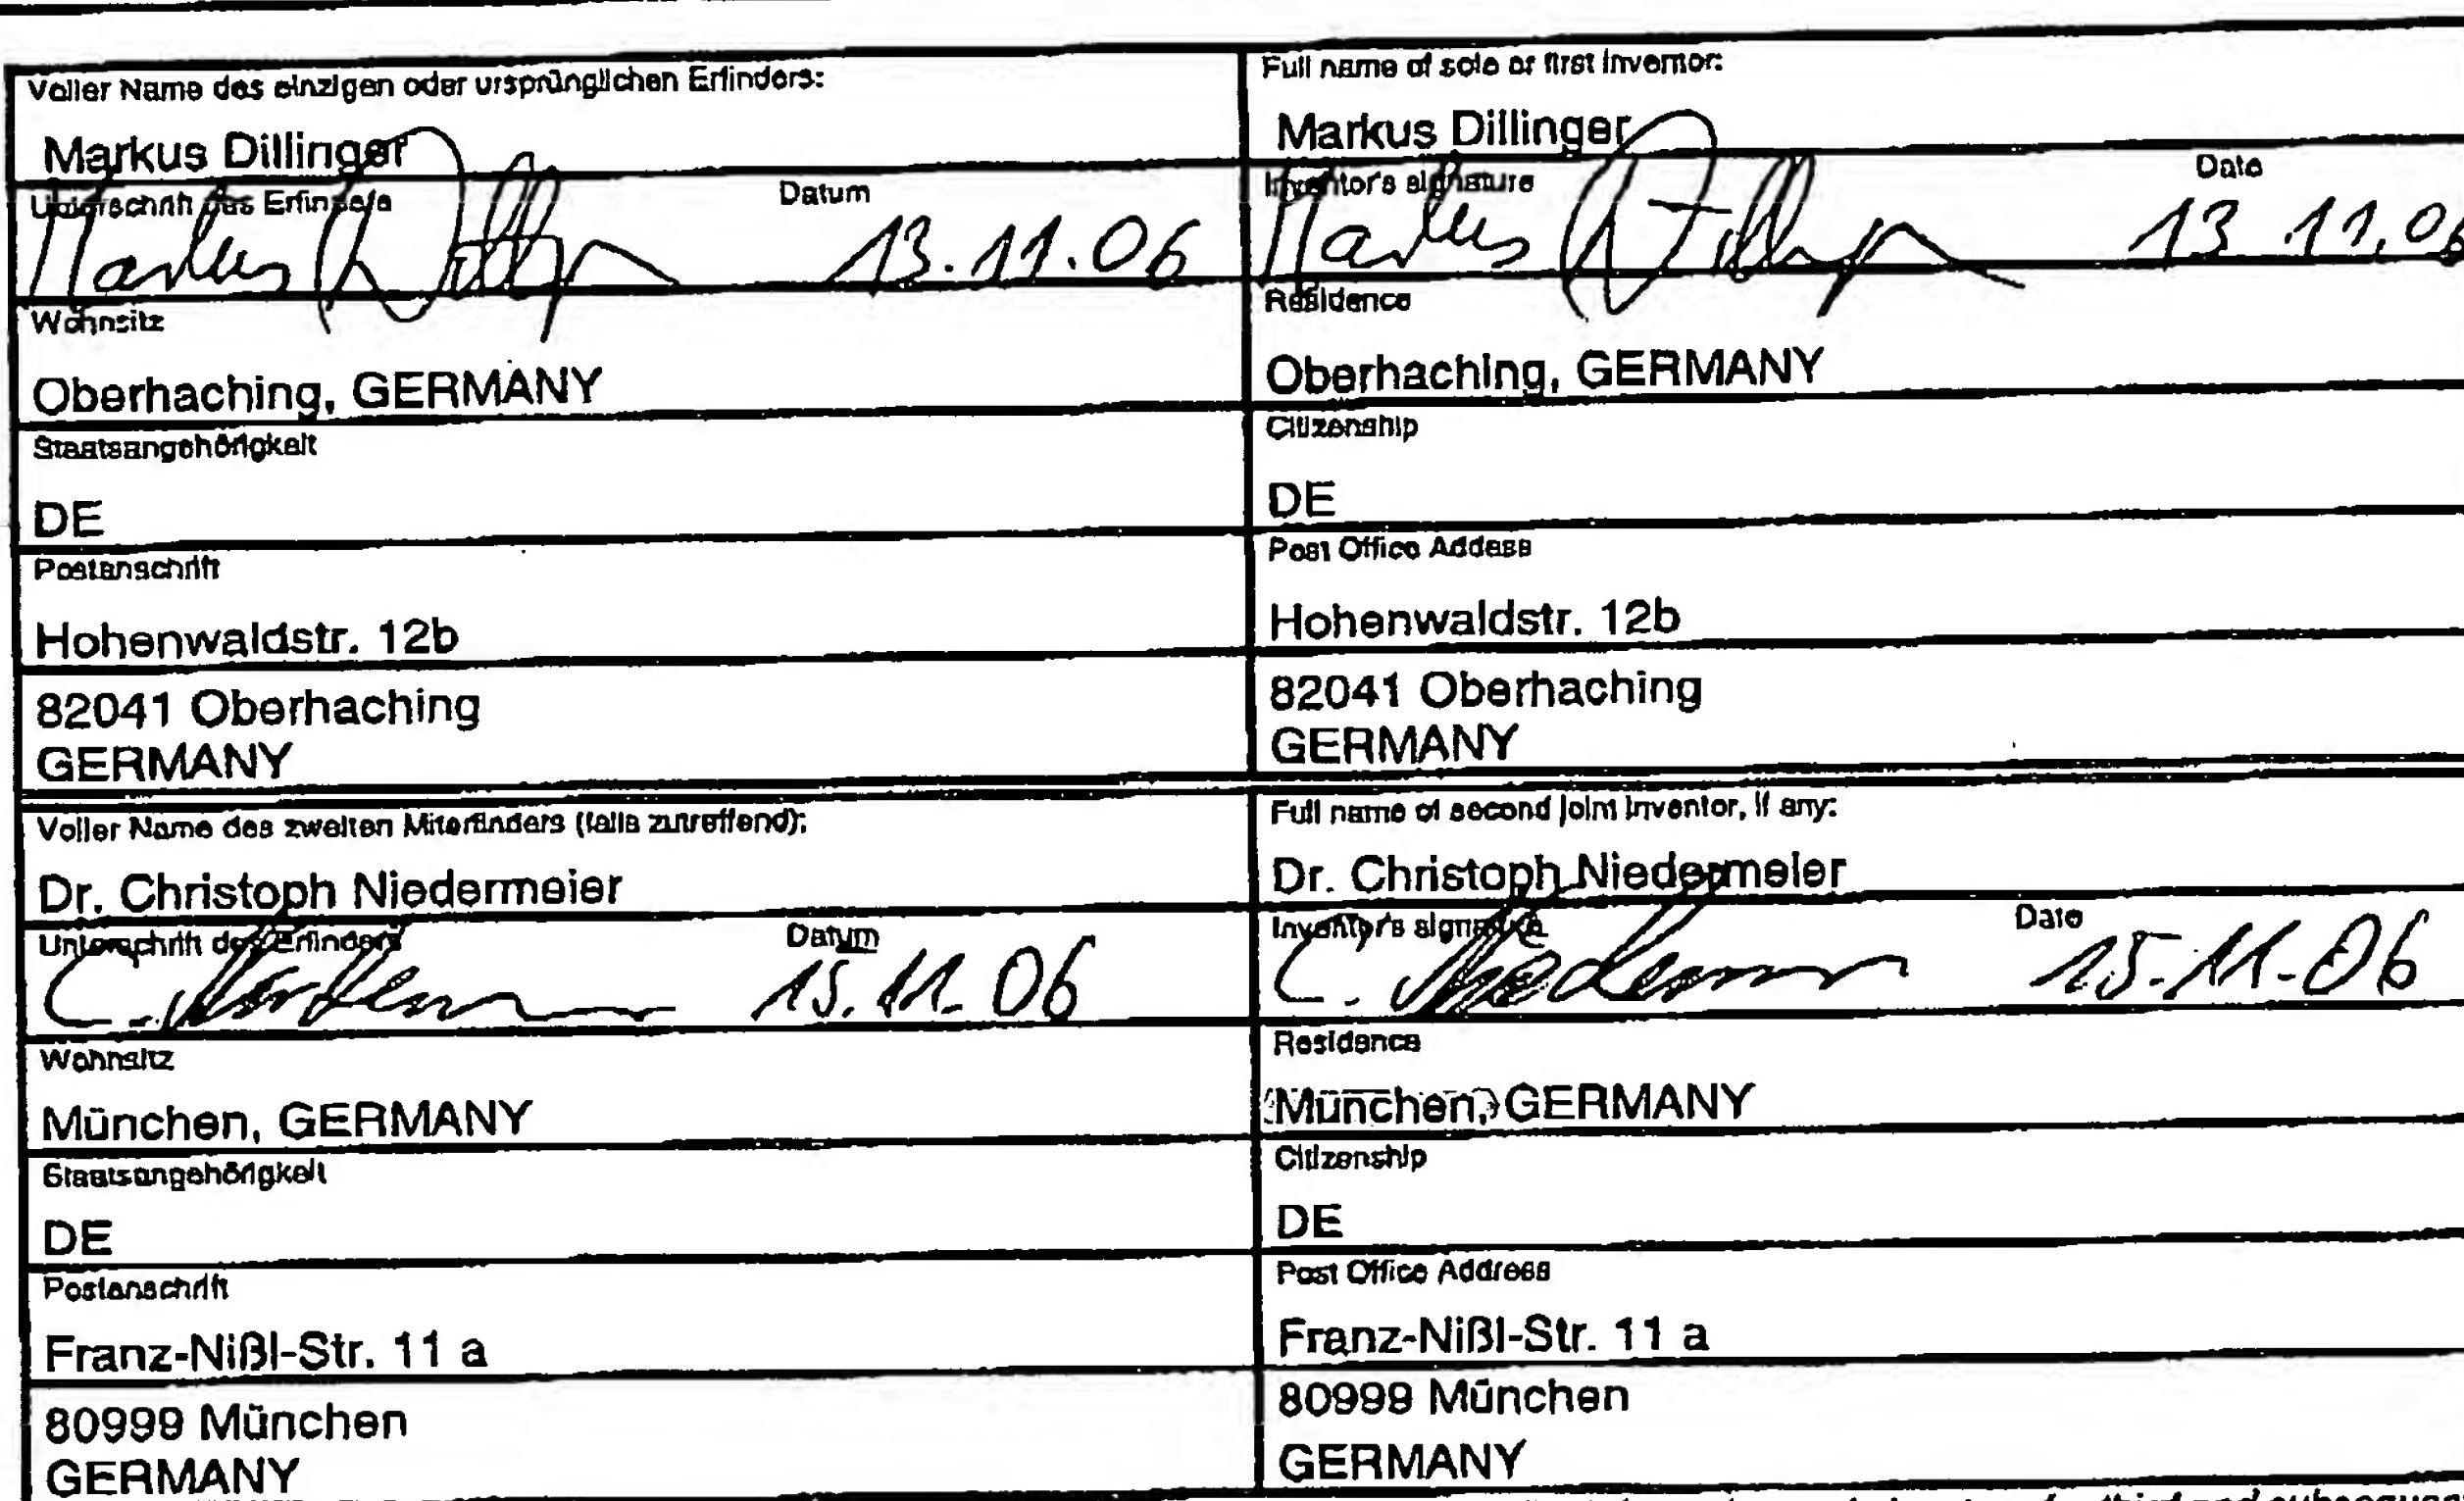 Voller Name des einzigen oder ursprünglichen Erfinders:
Markus Dillinger
Unterschrift des Erfinders Datum
Markus Dillinger 13.11.06
Wohnsitz
Oberhaching, GERMANY
Staatsangehörigkeit
DE
Postanschrift
Hohenwaldstr. 12b
82041 Oberhaching
GERMANY
Voller Name des zweiten Miterfinders (falls zutreffend):
Dr. Christoph Niedermeier
Unterschrift des Erfinders Datum
C. 15.11.06
Wohnsitz
München, GERMANY
Staatsangehörigkeit
DE
Postanschrift
Franz-Nißl-Str. 11 a
80999 München
GERMANY
Full name of sole or first inventor:
Markus Dillinger
Inventor's signature Date
Markus Dillinger 13 11.06
Residence
Oberhaching, GERMANY
Citizenship
DE
Post Office Addess
Hohenwaldstr. 12b
82041 Oberhaching
GERMANY
Full name of second joint inventor, if any:
Dr. Christoph Niedermeier
Inventor's signature Date
C. 15.11.06
Residence
München, GERMANY
Citizenship
DE
Post Office Address
Franz-Nißl-Str. 11 a
80999 München
GERMANY
third and subsequent